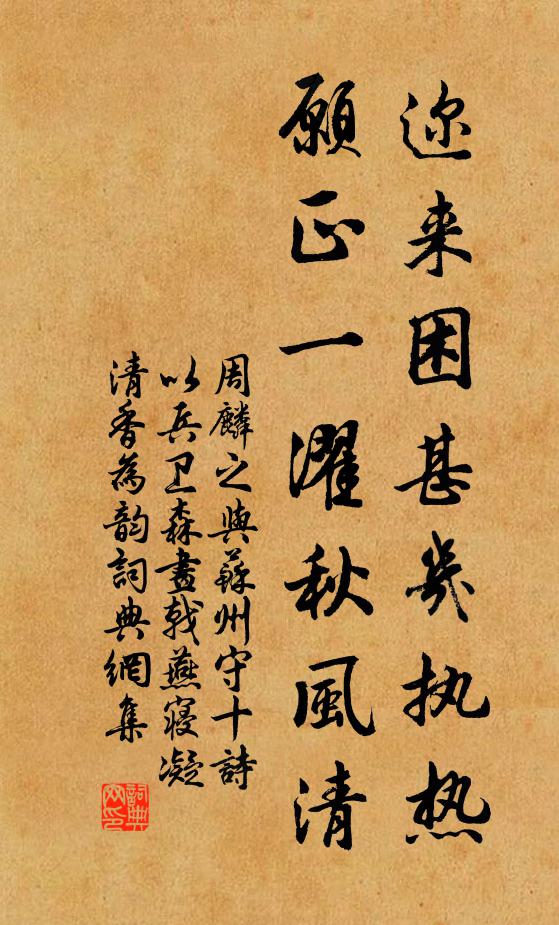 迩来困甚㡬执热
願正一濯秋風清
周麟之與蘇州守十詩
以兵卫森畫戟燕寝凝
清香為韵詞典網集
詞典網印